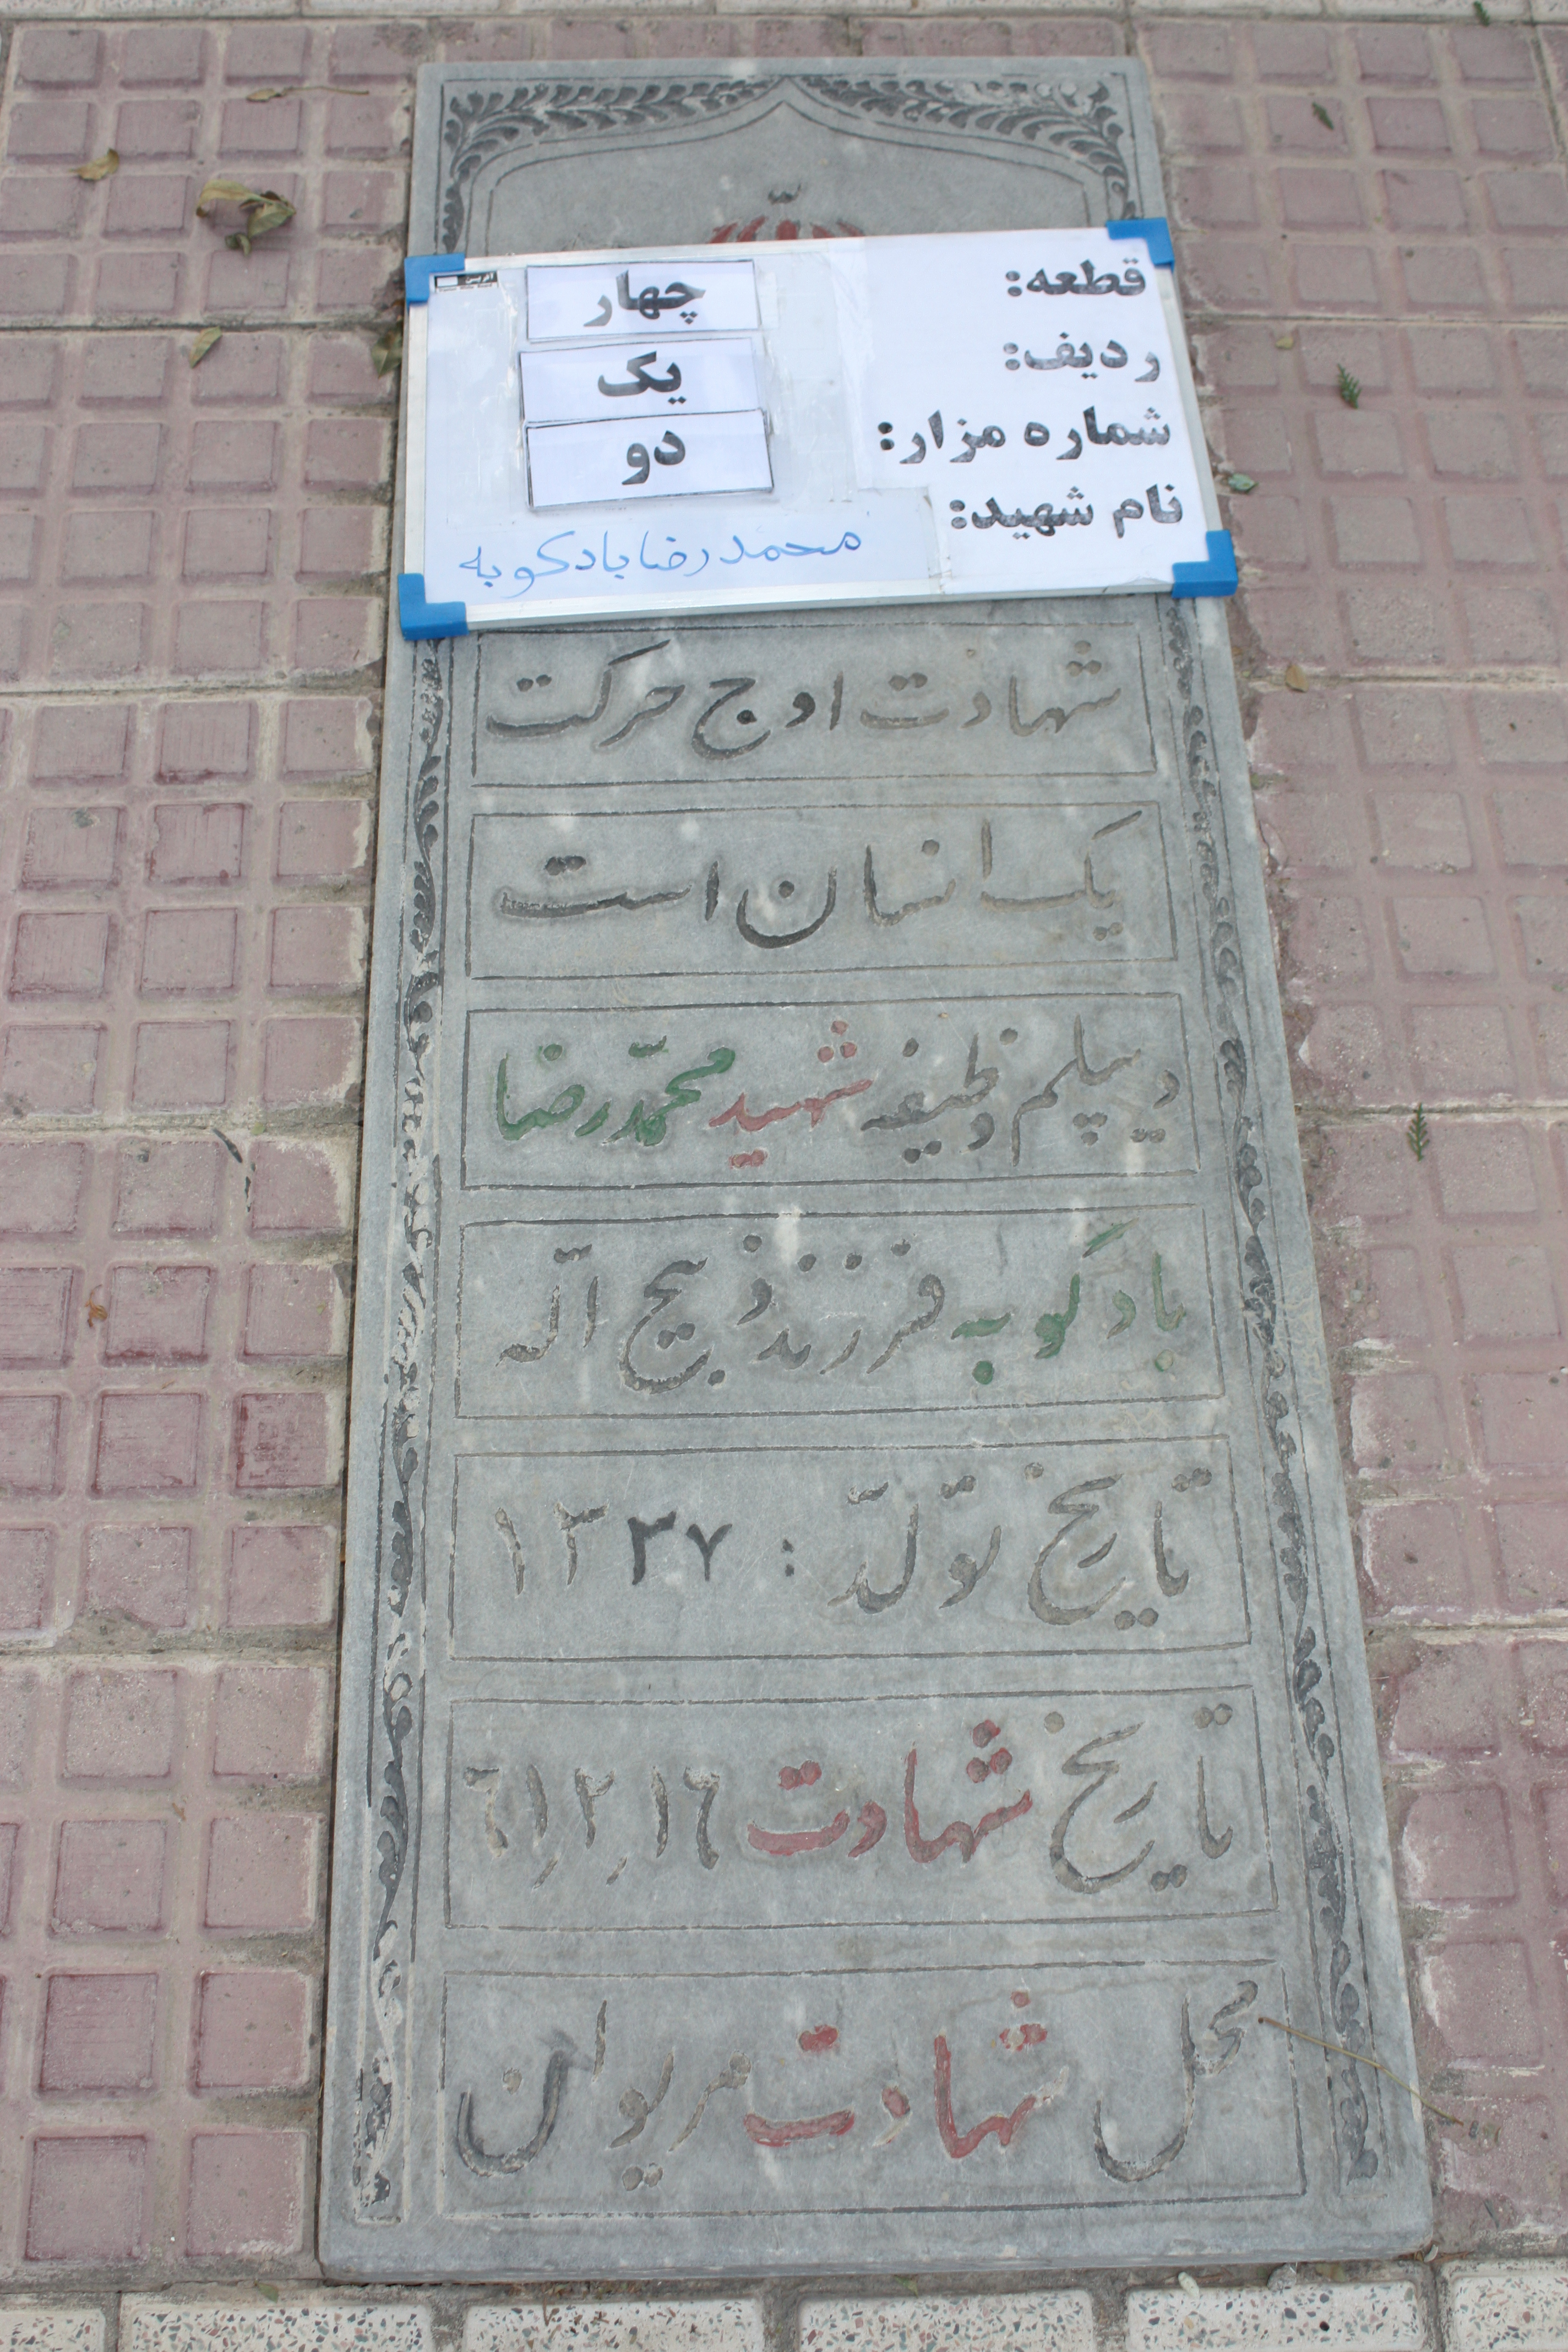 قطعه: چهار
ردیف: یک
شماره مزار: دو
نام شهید: محمدرضا بادکوبه
شهادت اوج حرکت
یک انسان است
دیپلم وظیفه شهید محمّدرضا
بادکوبه فرزند ذبیح اله
تاریخ تولّد : ۱۳۳۷
تاریخ شهادت ٦١٫٢٫١٦
محل شهادت مریوان